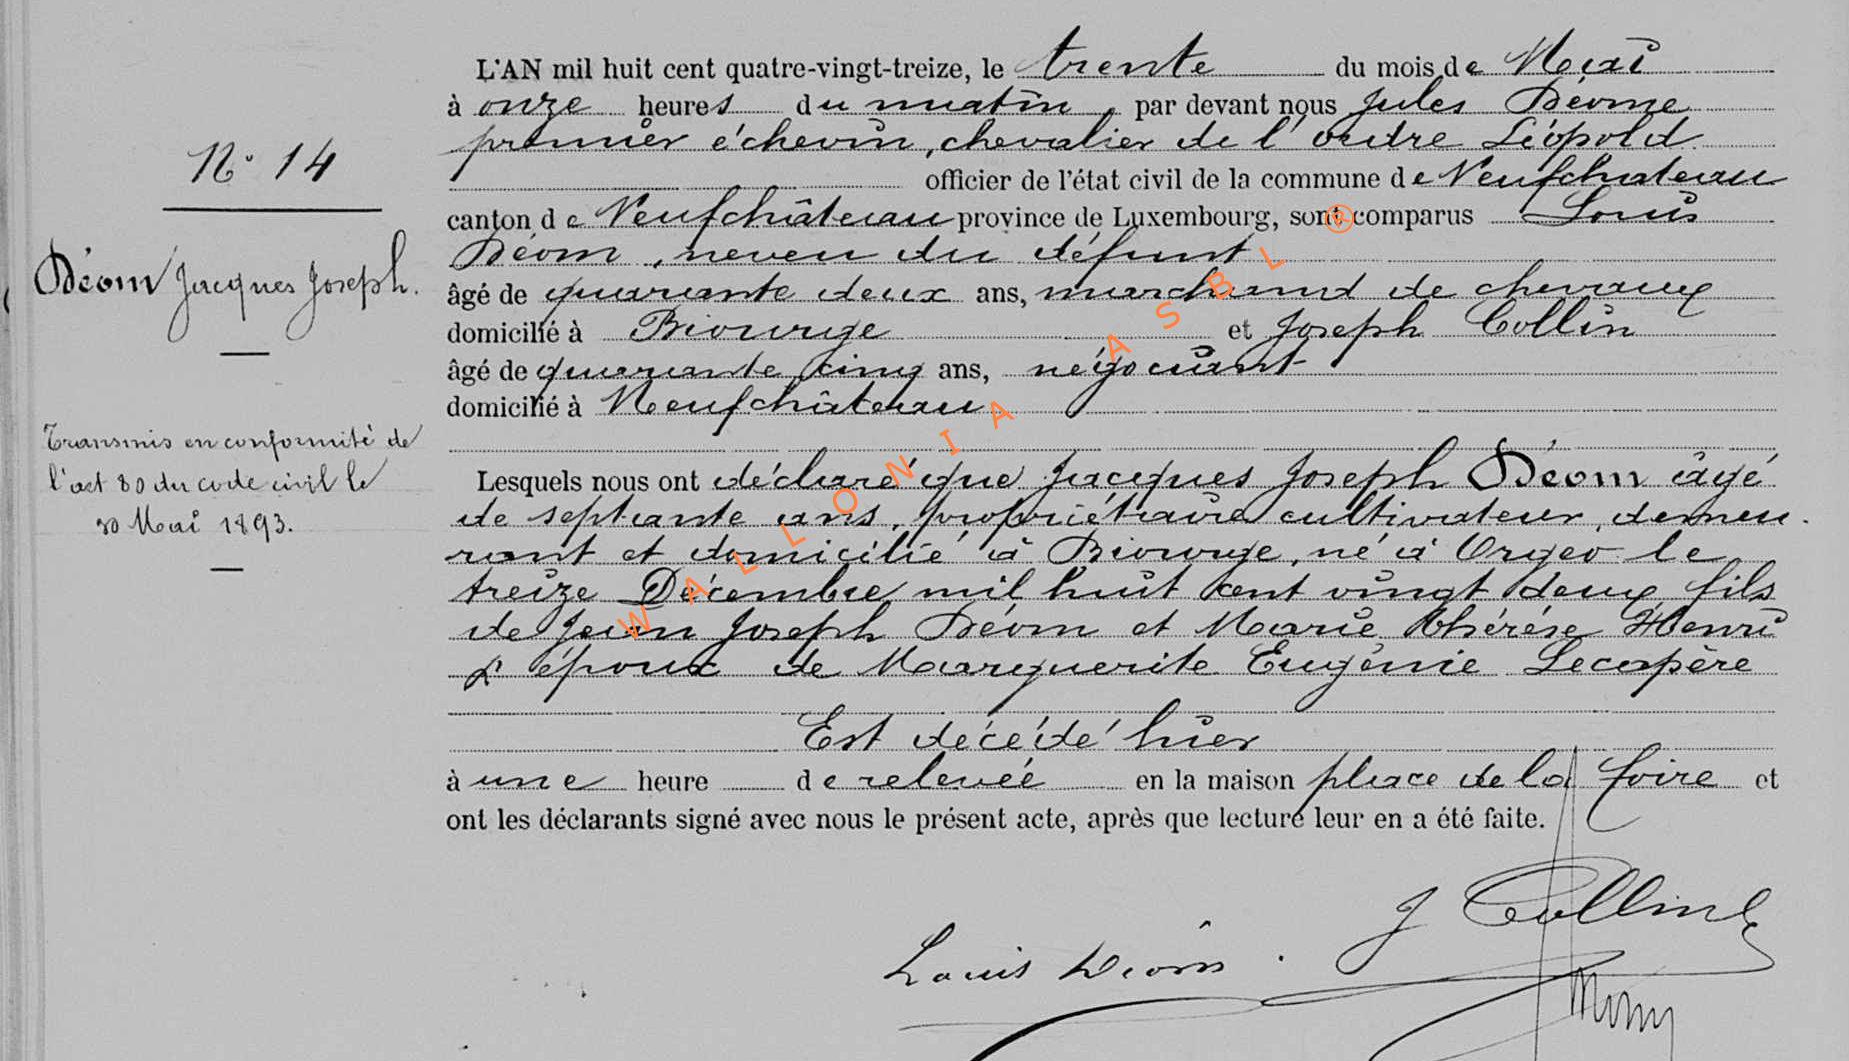 N° 14
Déom Jacques Joseph.
Transmis en conformité de
l'art 80 du code civil le
30 Mai 1893.
L'AN mil huit cent quatre-vingt-treize, le trente du mois de Mai
à onze heures du matin, par devant nous Jules
premier échevin, chevalier de l'ordre Léopold
officier de l'état civil de la commune de Neufchateau
canton de Neufchâteau province de Luxembourg, sont comparus Louis
Déom, neveu du défunt
âgé de quarante deux ans, marchand de chevaux
domicilié à Biourge et Joseph Collin
âgé de quarante cinq ans, négociant
domicilié à Neufchâteau
Lesquels nous ont déclaré que Jacques Joseph Déom âgé
de septante ans, propriétaire cultivateur, demeu
rant et domicilié à Biourge, né à Orgeo le
treize Décembre mil huit cent vingt deux fils
de Jean Joseph Déom et Marie Thérèse Henri
& époux de Marguerite Eugénie
Est décédé hier
à une heure de relevée en la maison place de la foire et
ont les déclarants signé avec nous le présent acte, après que lecture leur en a été faite.
J Collin
Louis Déom
WALLONIA ASBL ®